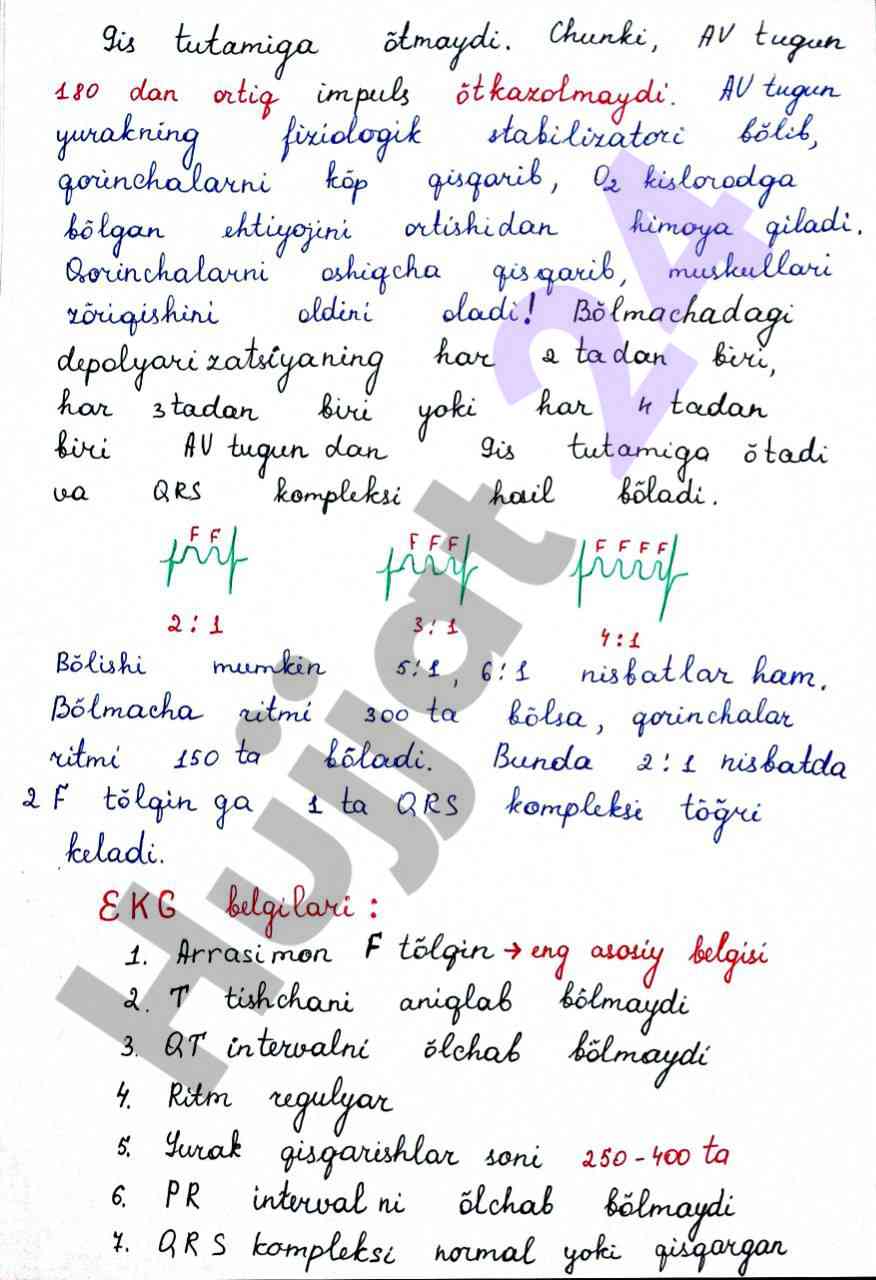 Gis tutamiga õtmaydi. Chunki, AV tugun
180 dan ortiq impuls õtkazolmaydi. AV tugun
yurakning fiziologik stabilizatori bõlib,
qorinchalarni kõp qisqarib, O₂ kislorodga
bõlgan ehtiyojini ortishidan himoya qiladi.
Qorinchalarni oshiqcha qisqarib, muskullari
zõriqishini oldini oladi! Bõlmachadagi
depolyarizatsiyaning har 2 tadan biri,
har 3 tadan biri yoki har 4 tadan
biri AV tugun dan Gis tutamiga õtadi
va QRS kompleksi hosil bõladi.
F F F F F F F F F
2:1 3:1 4:1
Bõlishi mumkin 5:1, 6:1 nisbatlar ham.
Bõlmacha ritmi 300 ta bõlsa, qorinchalar
ritmi 150 ta bõladi. Bunda 2:1 nisbatda
2 F tõlqin ga 1 ta QRS kompleksi tõğri
keladi.
EKG belgilari:
1. Arrasimon F tõlqin → eng asosiy belgisi
2. T tishchani aniqlab bõlmaydi
3. QT intervalni õlchab bõlmaydi
4. Ritm regulyar
5. Yurak qisqarishlar soni 250-400 ta
6. PR interval ni õlchab bõlmaydi
7. QRS kompleksi normal yoki qisqargan
Hujjat 24